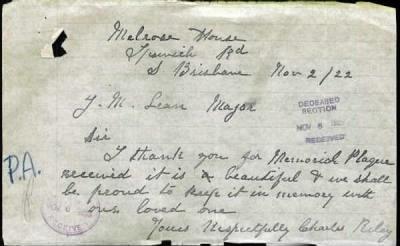 Melrose House
Ipswich Rd
S Brisbane Nov 2/22
J. M. Lean Major
DECEASED
SECTION
NOV 6
RECEIVED
Sir
I thank you for Memorial Plaque
received it is a beautiful & we shall
be proud to keep it in memory with
our loved one
Yours Respectfully Charles Riley
P.A.